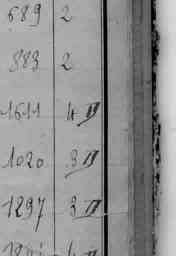 689 2
883 2
1611 4 II
1020 3 II
1297 3 II